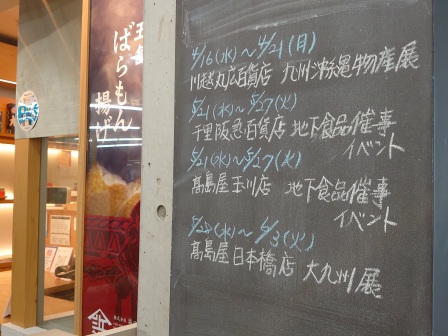 五島
ばらもん
揚げ
4/16(水)～4/21(月)
川越丸広百貨店 九州沖縄物産展
5/21(水)～5/27(火)
千里阪急百貨店 地下食品催事
イベント
5/21(水)～5/27(火)
髙島屋玉川店 地下食品催事
イベント
5/28(水)～6/3(火)
髙島屋日本橋店 大九州展